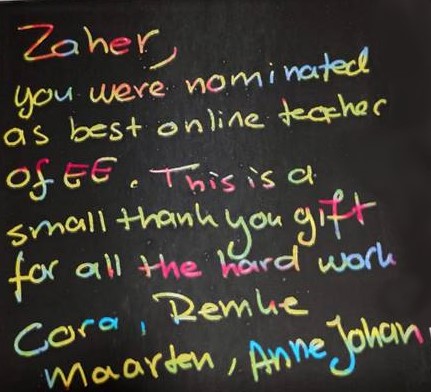 Zaher,
you were nominated
as best online teacher
of EE. This is a
small thank you gift
for all the hard work
Cora, Remke
Maarten, Anne Johan